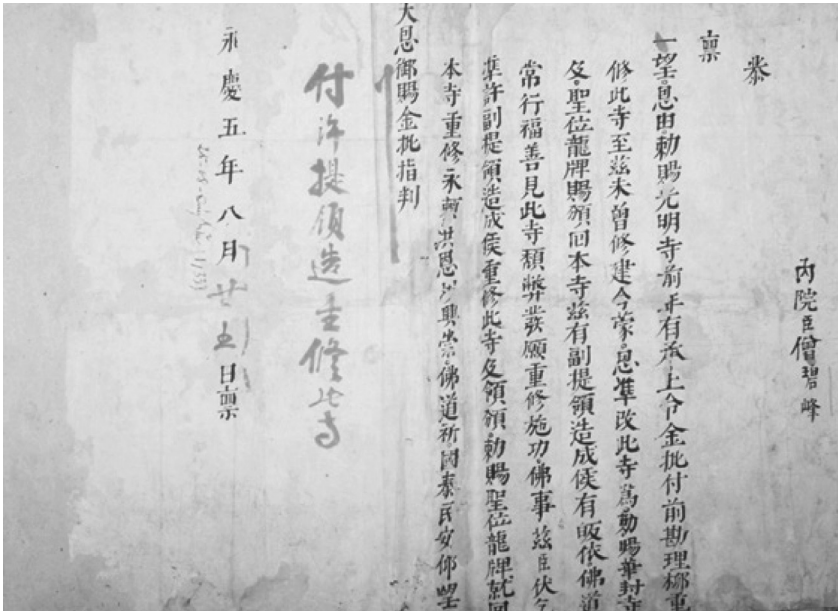 内院臣僧碧峰
恭
稟
一望恩由勅賜光明寺前年有承上令金批付前勘理鄉重
修此寺至茲未曾修建今蒙恩準改此寺爲勅賜華封寺
及聖位龍牌賜頒回本寺茲有副提領造成侯有皈依佛道
常行福善見此寺頹弊發願重修施功佛事茲臣伏乞
準許副提領造成侯重修此寺及領頒勅賜聖位龍牌就回
本寺重修永賴洪恩以興崇佛道祈國泰民安仰望
大恩御賜金批指判
付許提領造重修此寺
永慶五年八月廿五日稟